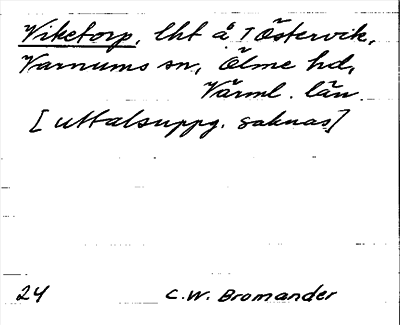 Viketorp, lht å 1 Östervik,
Varnums sn, Ölme hd,
Värml. län.
[Uttalsuppg. saknas]
24 C.W. Bromander